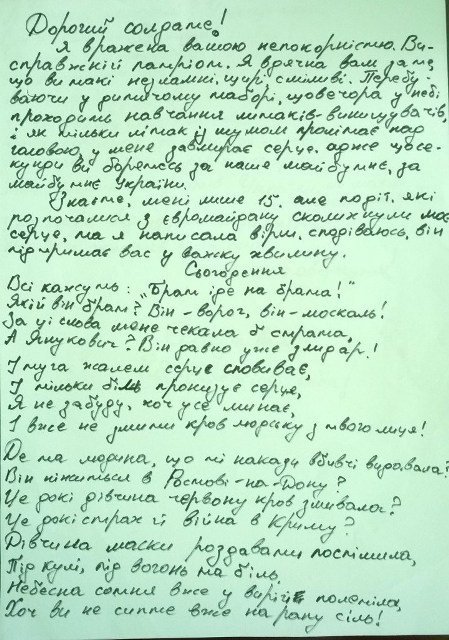 Дорогий солдате!
Я вражена вашою непокорністю. Ви-
справжній патріот. Я вдячна вам за те,
що ви такі незламні, щирі, сміливі. Перебу-
ваючи у дитячому таборі, щовечора у небі
проходить навчання літаків-винищувачів,
і як тільки літак із шумом пролітає над
головою, у мене завмирає серце, адже щосе-
кунди ви боретесь за наше майбутнє, за
майбутнє України.
Знаєте, мені лише 15, але події, які
розпочалися з євромайдану сколихнули моє
серце, та я написала вірш, сподіваюсь, він
підтримає вас у важку хвилину.
Сьогодення
Всі кажуть: „Брат іде на брата!"
Який він брат? Він - ворог, він - москаль!
За ці слова мене чекала б страта,
А Янукович? Він давно уже злидар!
І туга жалем серце сповиває,
І тільки біль пронизує серце,
Я не забуду, хоч усе минає,
І вже не змити кров людську з твого лиця!
Де та людина, що ті накази вбивчі видавала?
Він ніжиться в Ростові-на-Дону?
Це доки дівчина червону кров змивала?
Це доки страх й війна в Криму?
Дівчина маски роздавати поспішила,
Під кулі, під вогонь та біль,
Небесна сотня вже у вирій полетіла,
Хоч ви не сипте вже на рану сіль!